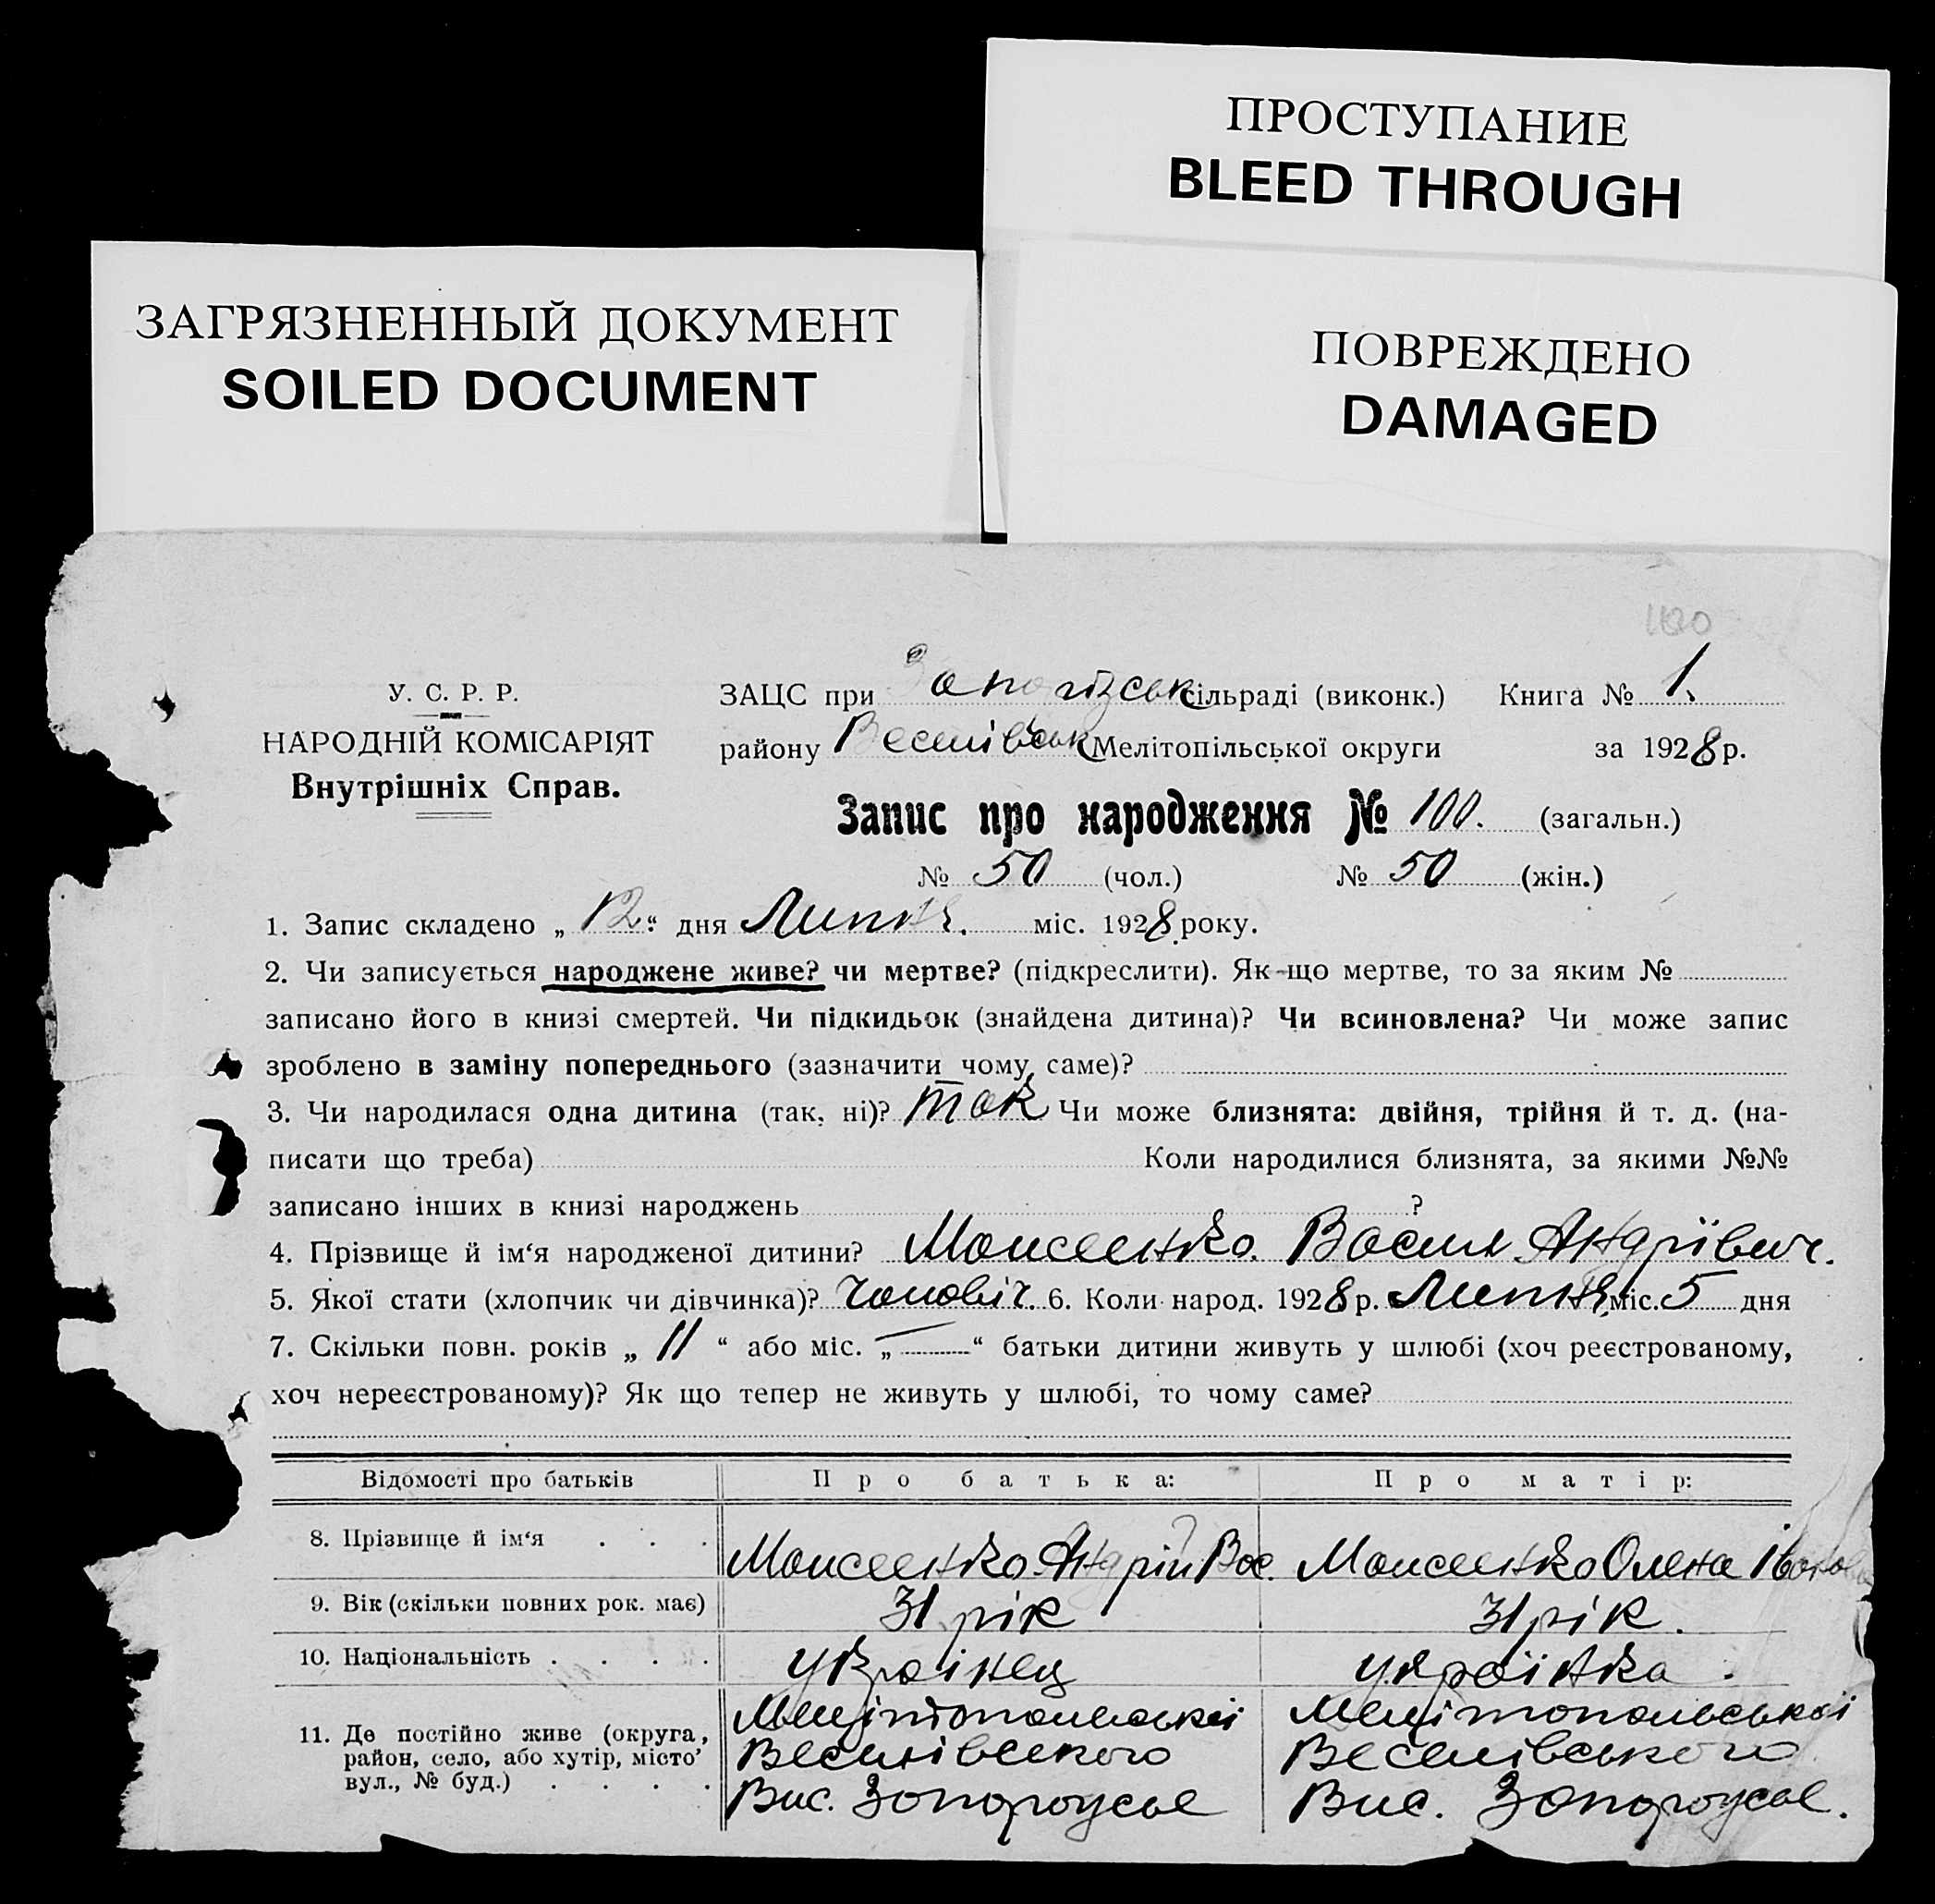 ПРОСТУПАНИЕ
BLEED THROUGH
ЗАГРЯЗНЕННЫЙ ДОКУМЕНТ
SOILED DOCUMENT
ПОВРЕЖДЕНО
DAMAGED
У. С. Р. Р.
НАРОДНІЙ КОМІСАРІЯТ
Внутрішніх Справ.
ЗАЦС при сільраді (виконк.) Книга № 1.
району Веселівськ Мелітопільської округи за 1928 р.
Запис про народження № 100. (загальн.)
№ 50 (чол.) № 50 (жін.)
1. Запис складено „ 12 “ дня Липня. міс. 1928 року.
2. Чи записується народжене живе? чи мертве? (підкреслити). Як-що мертве, то за яким №
записано його в книзі смертей. Чи підкидьок (знайдена дитина)? Чи всиновлена? Чи може запис
зроблено в заміну попереднього (зазначити чому саме)?
3. Чи народилася одна дитина (так, ні)? так Чи може близнята: двійня, трійня й т. д. (на-
писати що треба) Коли народилися близнята, за якими №№
записано інших в книзі народжень ?
4. Прізвище й ім‘я народженої дитини? Моисеенко Василь Андрійович.
5. Якої стати (хлопчик чи дівчинка)? Чоловіч. 6. Коли народ. 1928 р. Липня міс. 5 дня
7. Скільки повн. років „ 11 “ або міс. „ — “ батьки дитини живуть у шлюбі (хоч реєстрованому,
хоч нереєстрованому)? Як що тепер не живуть у шлюбі, то чому саме?
Відомості про батьків Про батька: Про матір:
8. Прізвище й ім‘я . . . Моисеенко Андрій Вас. Моисеенко Олена Івановна
9. Вік (скільки повних рок. має) 31 рік 31 рік.
10. Національність . . . . Українец українка.
11. Де постійно живе (округа, Мелітопольськоі Мелітопольськоі
район, село, або хутір, місто’ Веселівського Веселівського
вул., № буд.) . . . . Вис. Запорожье Вис. Запорожье.